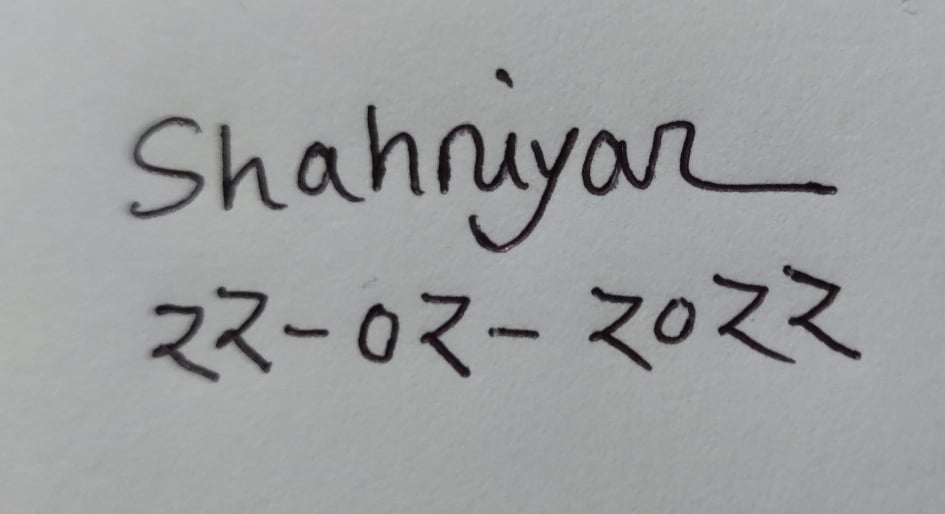 Shahriyar
22-02-2022